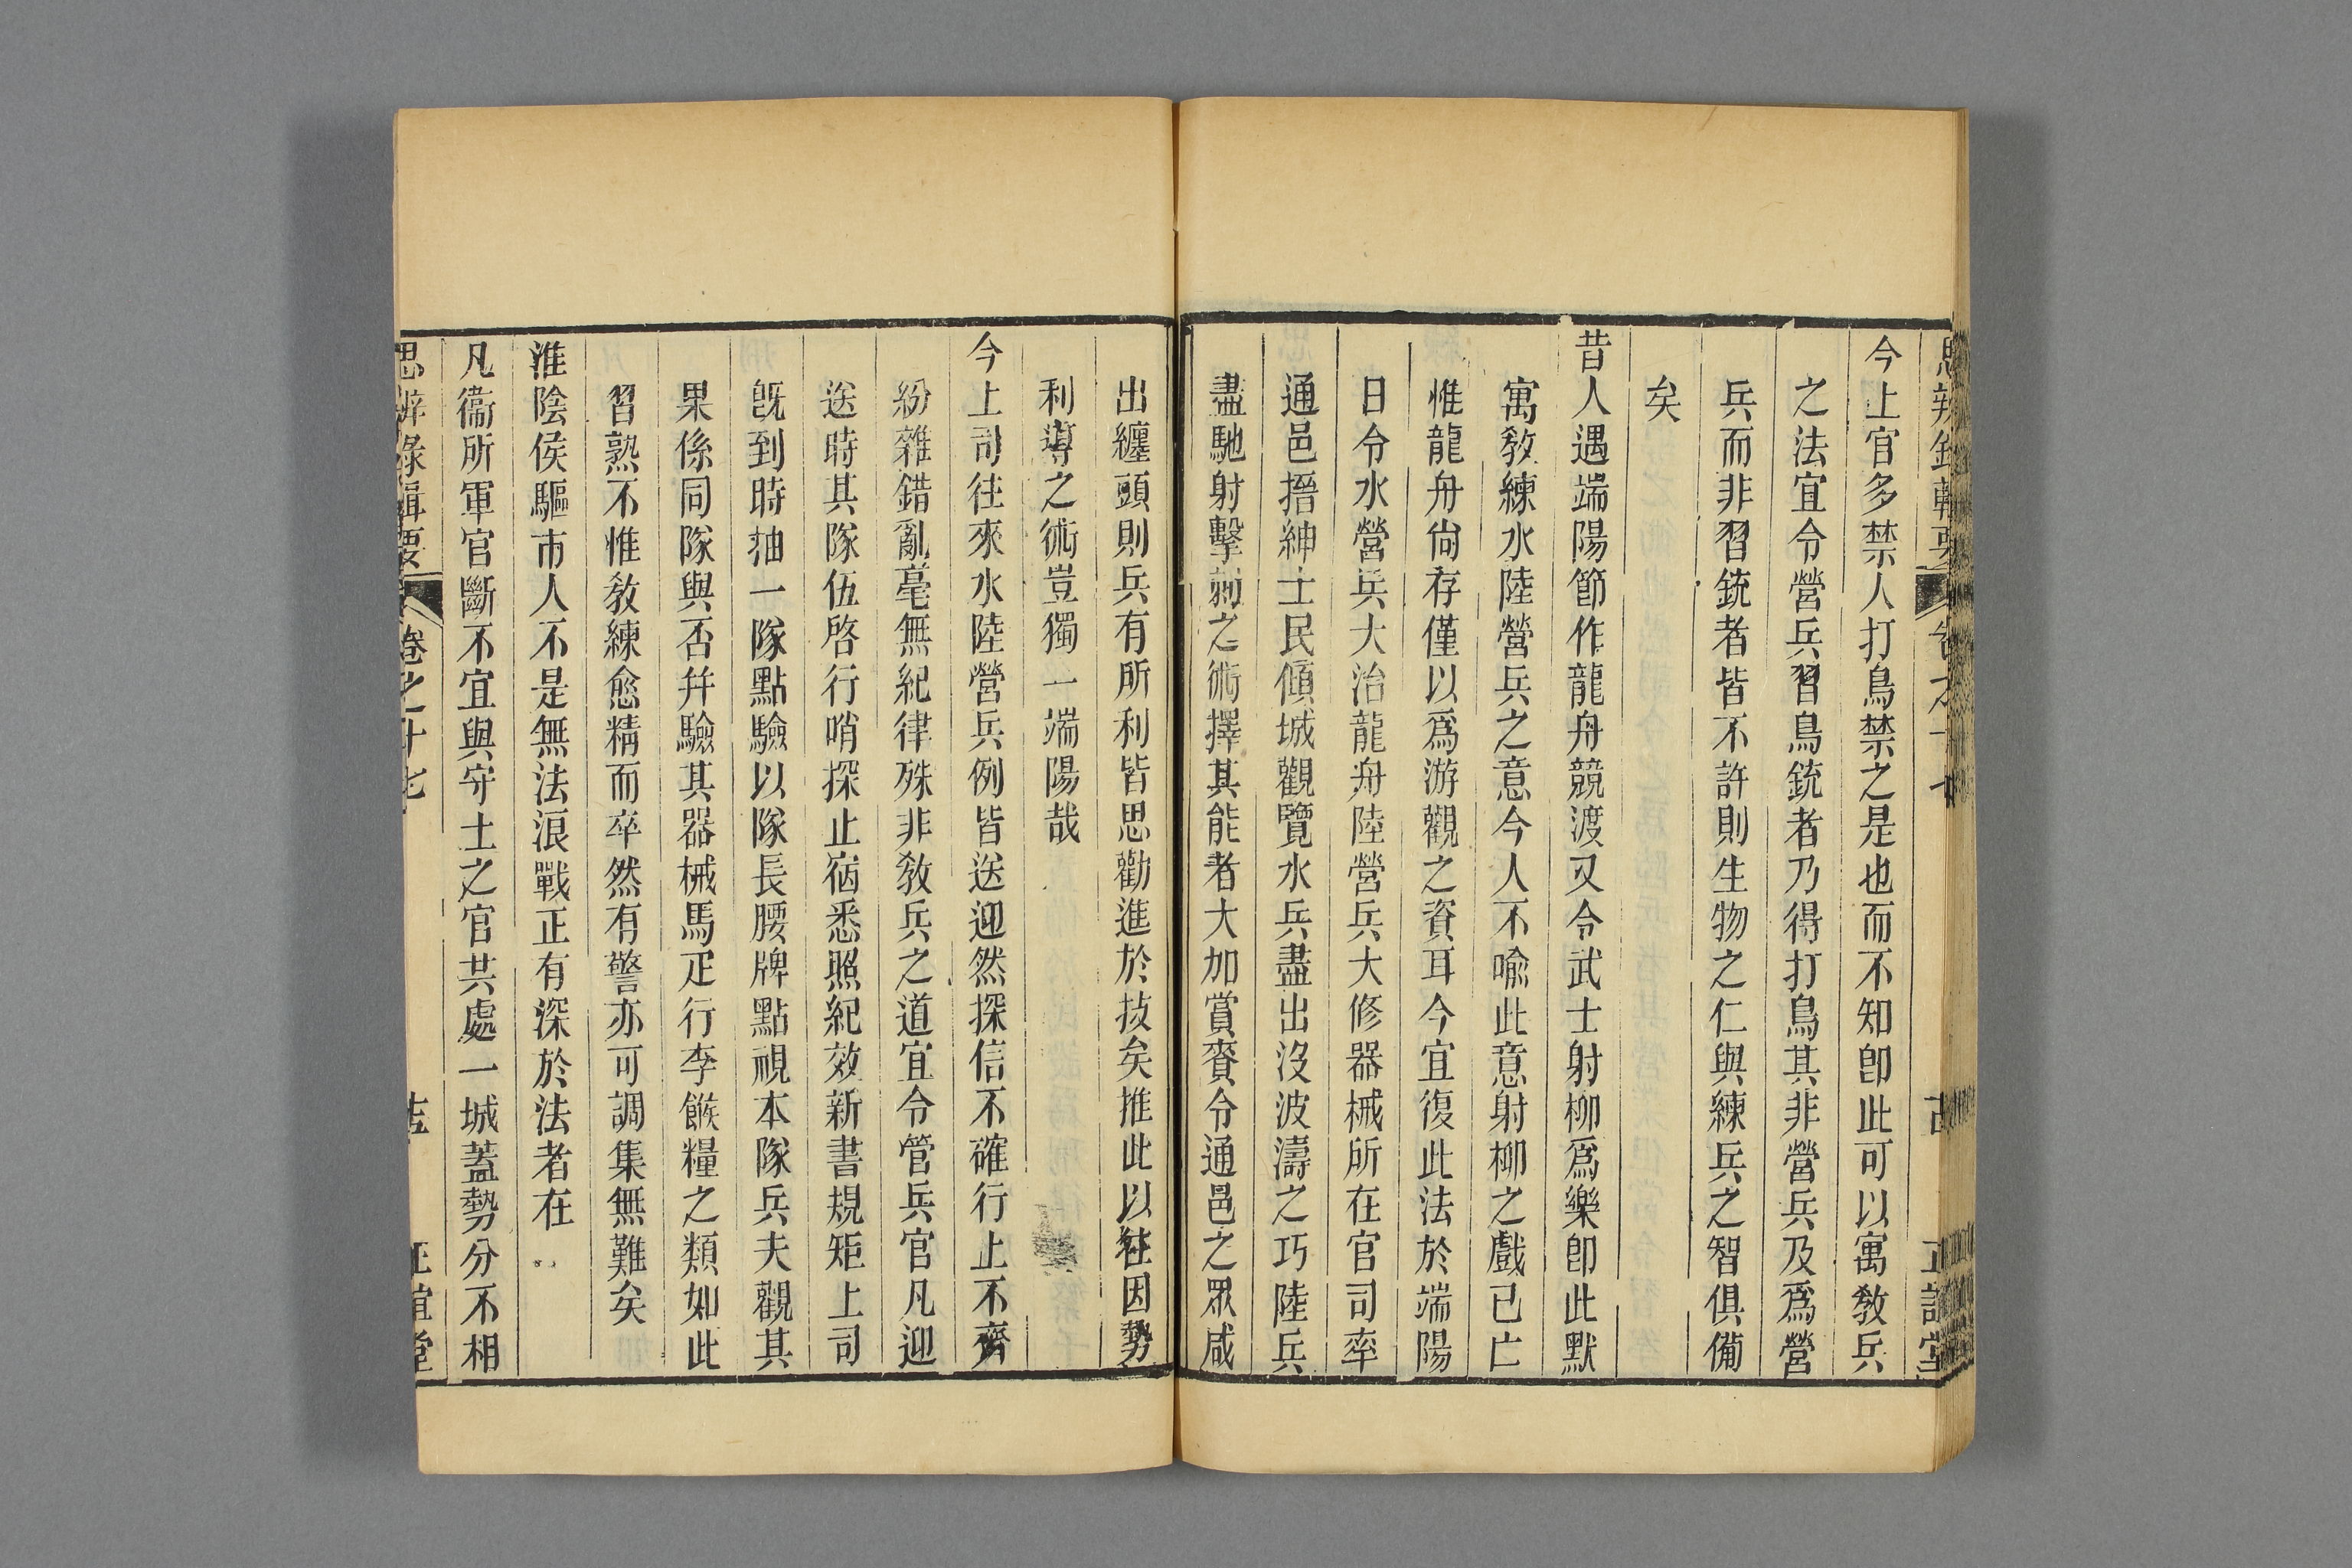 今上官多禁人打鳥禁之是也而不知卽此可以寓敎兵
之法宜令營兵習鳥銃者乃得打鳥其非營兵及爲營
兵而非習銃者皆不許則生物之仁與練兵之智俱備
矣
昔人遇端陽節作龍舟競渡又令武士射柳爲樂卽此默
寓敎練水陸營兵之意今人不喻此意射柳之戲已亡
惟龍舟尙存僅以爲游觀之資耳今宜復此法於端陽
日令水營兵大治龍舟陸營兵大修器械所在官司率
通邑搢紳士民傾城觀覽水兵盡出沒波濤之巧陸兵
盡馳射擊刺之術擇其能者大加賞賚令通邑之眾咸
出纏頭則兵有所利皆思勸進於技矣推此以往因勢
利導之術豈獨一端陽哉
今上司往來水陸營兵例皆送迎然探信不確行止不齊
紛雜錯亂毫無紀律殊非敎兵之道宜令管兵官凡迎
送時其隊伍啓行哨探止宿悉照紀效新書規矩上司
旣到時抽一隊點驗以隊長腰牌點視本隊兵夫觀其
果係同隊與否幷驗其器械馬疋行李餱糧之類如此
習熟不惟敎練愈精而卒然有警亦可調集無難矣
淮陰侯驅市人不是無法浪戰正有深於法者在
凡衞所軍官斷不宜與守土之官共處一城蓋勢分不相
思辨錄輯要 卷之十七 正誼堂